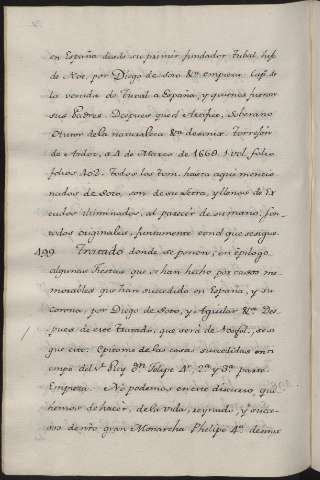 en España desde su primer fundador Tubal, hijo
de Noe, por Diego de Soto &ra. empieza: Cap. de
la venida de Tubal a España, y quienes fueron
sus Padres. Despues que el Artifice, Soberano
Autor de la naturaleza &ra. desenix. Torrejon
de Ardoz, a 4 de Marzo de 1668. 1. vol. folio
folios 402. Todos los tom. hasta aqui mencio
nados de Soto, son de su Letra, y llenos de Es
cudos iluminados, al parecer de su mano, son
todos originales, juntamente con el que se sigue.
199 Tratado donde se ponen, en epilogo
algunas fiestas que se han hecho por casos me
morables que han succedido en España, y su
corona, por Diego de Soto, y Aguilar &ra. Des
pues de este tratado, que será de fol. se si
gue este: Epitome de las cosas succedidas en ti
empo del Sr. Rey Dn. Felipe 4º, 2ª y 3ª parte.
Empieza: No podemos en este discurso, que
hemos de hacer, de la vida, reynado, y succe
sos de nro gran Monarcha Phelipe 4º